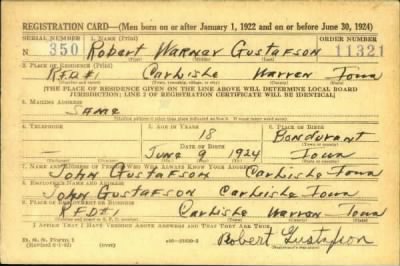 REGISTRATION CARD—(Men born on or after January 1, 1922 and on or before June 30, 1924)
SERIAL NUMBER 1. NAME (Print) ORDER NUMBER
N 350 Robert Warner Gustafson 11321
(First) (Middle) (Last)
2. PLACE OF RESIDENCE (Print)
R.F.D.#1 Carlisle Warren Iowa
(Number and street) (Town, township, village, or city) (County) (State)
[THE PLACE OF RESIDENCE GIVEN ON THE LINE ABOVE WILL DETERMINE LOCAL BOARD
JURISDICTION; LINE 2 OF REGISTRATION CERTIFICATE WILL BE IDENTICAL]
3. MAILING ADDRESS
Same
[Mailing address if other than place indicated on line 2. If same insert word same]
4. TELEPHONE 5. AGE IN YEARS 6. PLACE OF BIRTH
18 Bondurant
DATE OF BIRTH (Town or county)
— June 9 1924 Iowa
(Exchange) (Number) (Mo.) (Day) (Yr.) (State or country)
7. NAME AND ADDRESS OF PERSON WHO WILL ALWAYS KNOW YOUR ADDRESS
John Gustafson Carlisle Iowa
8. EMPLOYER'S NAME AND ADDRESS
John Gustafson Carlisle Iowa
9. PLACE OF EMPLOYMENT OR BUSINESS
R.F.D#1 Carlisle Warren Iowa
(Number and street or R. F. D. number) (Town) (County) (State)
I AFFIRM THAT I HAVE VERIFIED ABOVE ANSWERS AND THAT THEY ARE TRUE.
D. S. S. Form 1
Robert Gustafson